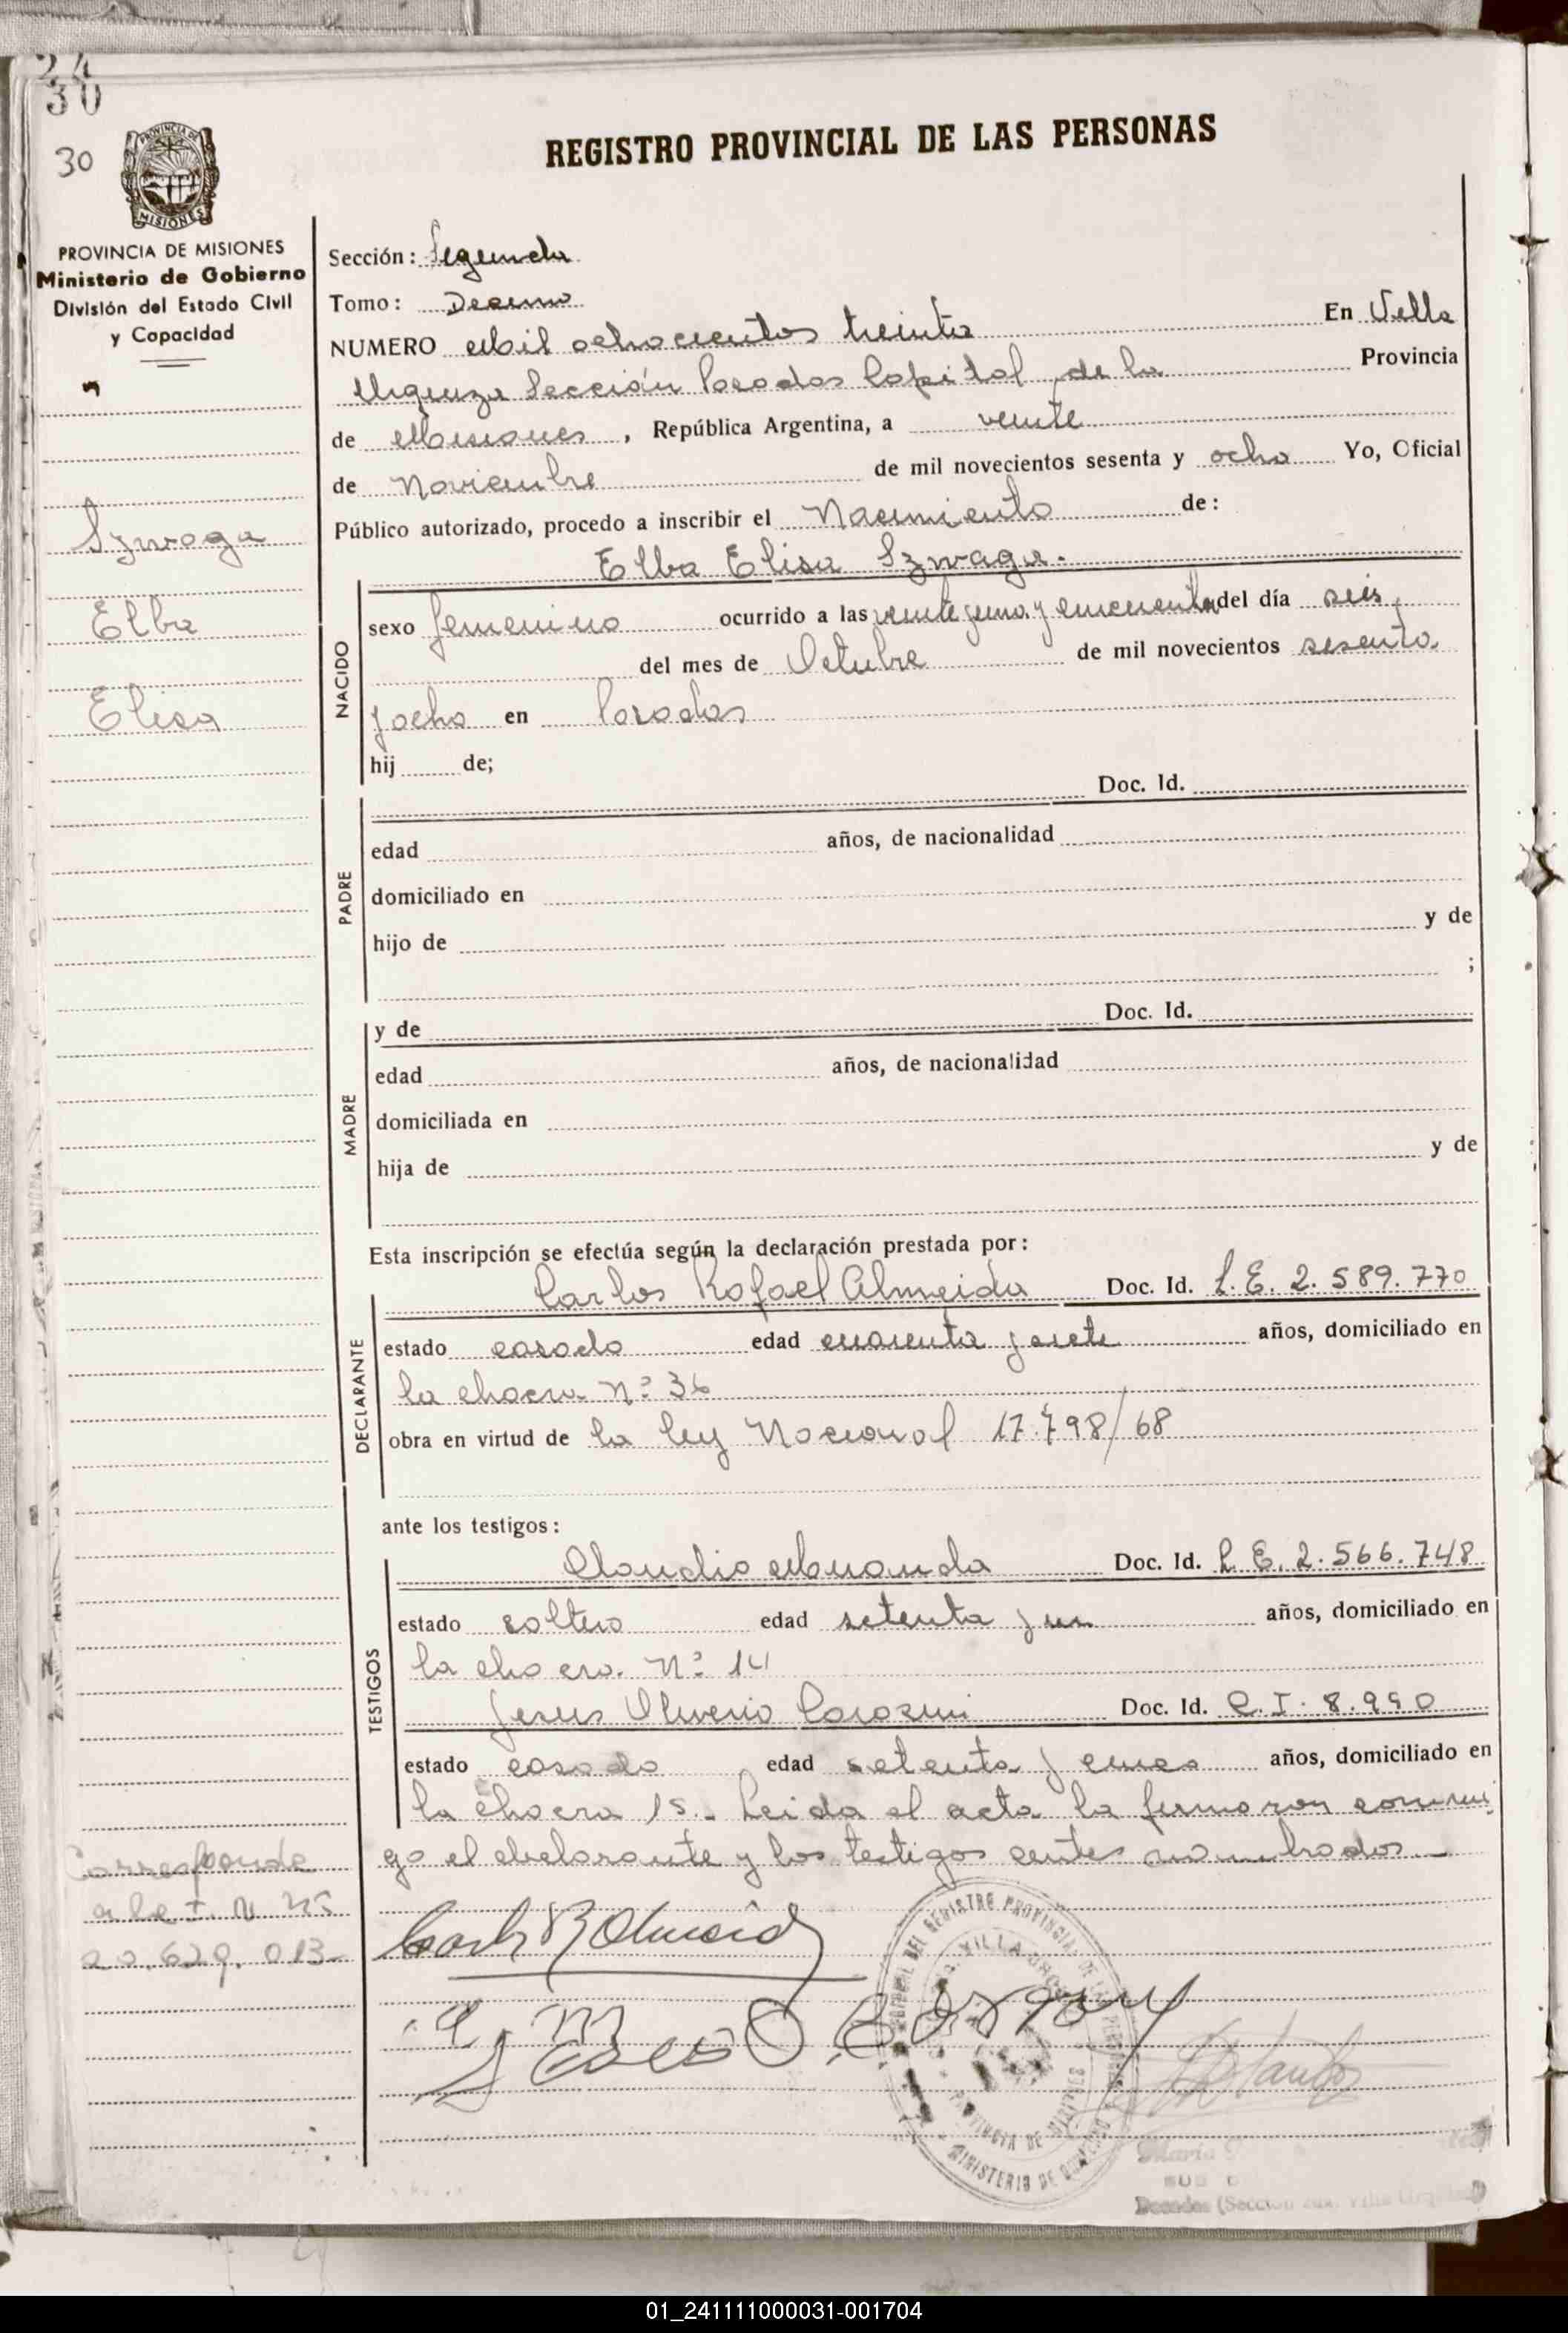 30
30
PROVINCIA DE MISIONES
REGISTRO PROVINCIAL DE LAS PERSONAS
PROVINCIA DE MISIONES
Ministerio de Gobierno
División del Estado Civil
y Capacidad
Sección: Segunda
Tomo: Decimo
NUMERO Mil ochocientos treinta En Villa
Urquiza Sección Posadas Capital de la Provincia
de Misiones, República Argentina, a veinte
de Noviembre de mil novecientos sesenta y ocho Yo, Oficial
Público autorizado, procedo a inscribir el Nacimiento de:
Elba Elisa Szwaga.
Szwaga
Elba
Elisa
NACIDO
sexo femenino ocurrido a las veinte y una y cincuenta del día seis,
del mes de Octubre de mil novecientos sesenta
y ocho en Posadas
hij de;
PADRE
Doc. Id.
edad años, de nacionalidad
domiciliado en
hijo de y de
;
MADRE
y de Doc. Id.
edad años, de nacionalidad
domiciliada en
hija de y de
Esta inscripción se efectúa según la declaración prestada por:
DECLARANTE
Carlos Rafael Almeida Doc. Id. L.E. 2.589.770
estado casado edad cuarenta y siete años, domiciliado en
la chacra Nº 36
obra en virtud de la ley Nacional 17.798/68
ante los testigos:
TESTIGOS
Claudio Miranda Doc. Id. L.E. 2.566.748
estado soltero edad setenta y un años, domiciliado en
la chacra Nº 14
Jesus Oliverio Doc. Id. C.I. 8.990
estado casado edad setenta y cinco años, domiciliado en
la chacra 15.- Leida el acta la firmaron conmi
go el declarante y los testigos antes nombrados.-
Corresponde
20.629.013-
Carlos R Almeida
MINISTERIO DE
Posadas (Sección Aux. Villa Urquiza)
01_241111000031-001704